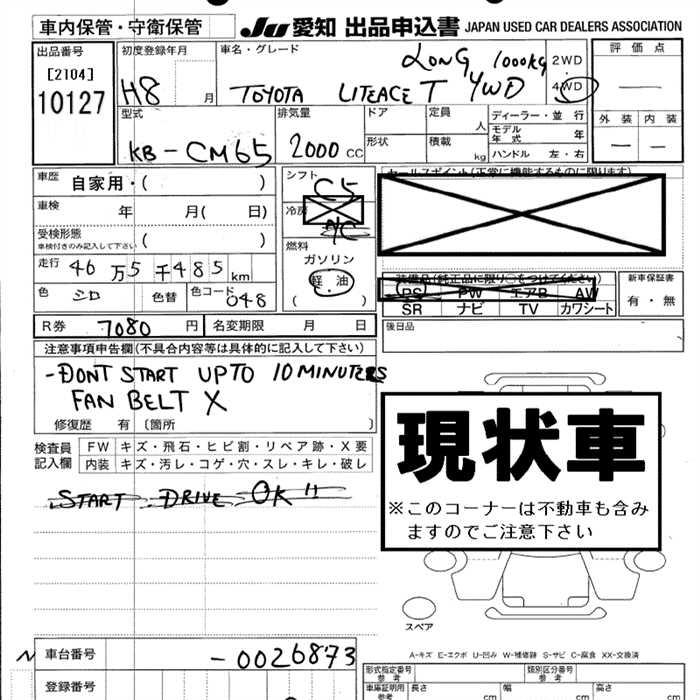 車内保管・守衛保管 JU 愛知 出品申込書 JAPAN USED CAR DEALERS ASSOCIATION
出品番号 初度登録年月 車名・グレード 評価点
[2104]
10127
H8 月
LONG 1000KG
TOYOTA LITEACE T 4WD
2WD
4WD
外装 内装
型式 排気量 ドア 定員 人 ディーラー・並行
モデル年式 年
KB-CM65 2000 CC 形状 積載 kg ハンドル 左・右
車歴 自家用・( )
シフト C5
セールスポイント(正常に機能するものに限ります)
車検 年 月( 日)
冷房
A/C
受検形態
車検付きのみ記入して下さい ( )
燃料
ガソリン
軽・油
( )
走行 46万5千485km
装備品(純正品に限り○をつけてください) 新車保証書
PS PW エアB AW 有・無
SR ナビ TV カワシート
色 シロ 色替 色コード 048
後日品
R券 7080 円 名変期限 月 日
注意事項申告欄(不具合内容等は具体的に記入して下さい)
-DONT START UPTO 10 MINUTERS
FAN BELT X
修復歴 有 〔箇所 〕
検査員記入欄 FW キズ・飛石・ヒビ割・リペア跡・X要
内装 キズ・汚レ・コゲ・穴・スレ・キレ・破レ
START DRIVE OK !!
現状車
※このコーナーは不動車も含みますのでご注意下さい
スペア
A-キズ E-エクボ U-凹み W-補修跡 S-サビ C-腐食 XX-交換済
車台番号 -0026873
登録番号
形式指定番号 参考 類別区分番号 参考
車庫証明用 参考 長さ cm 幅 cm 高さ cm